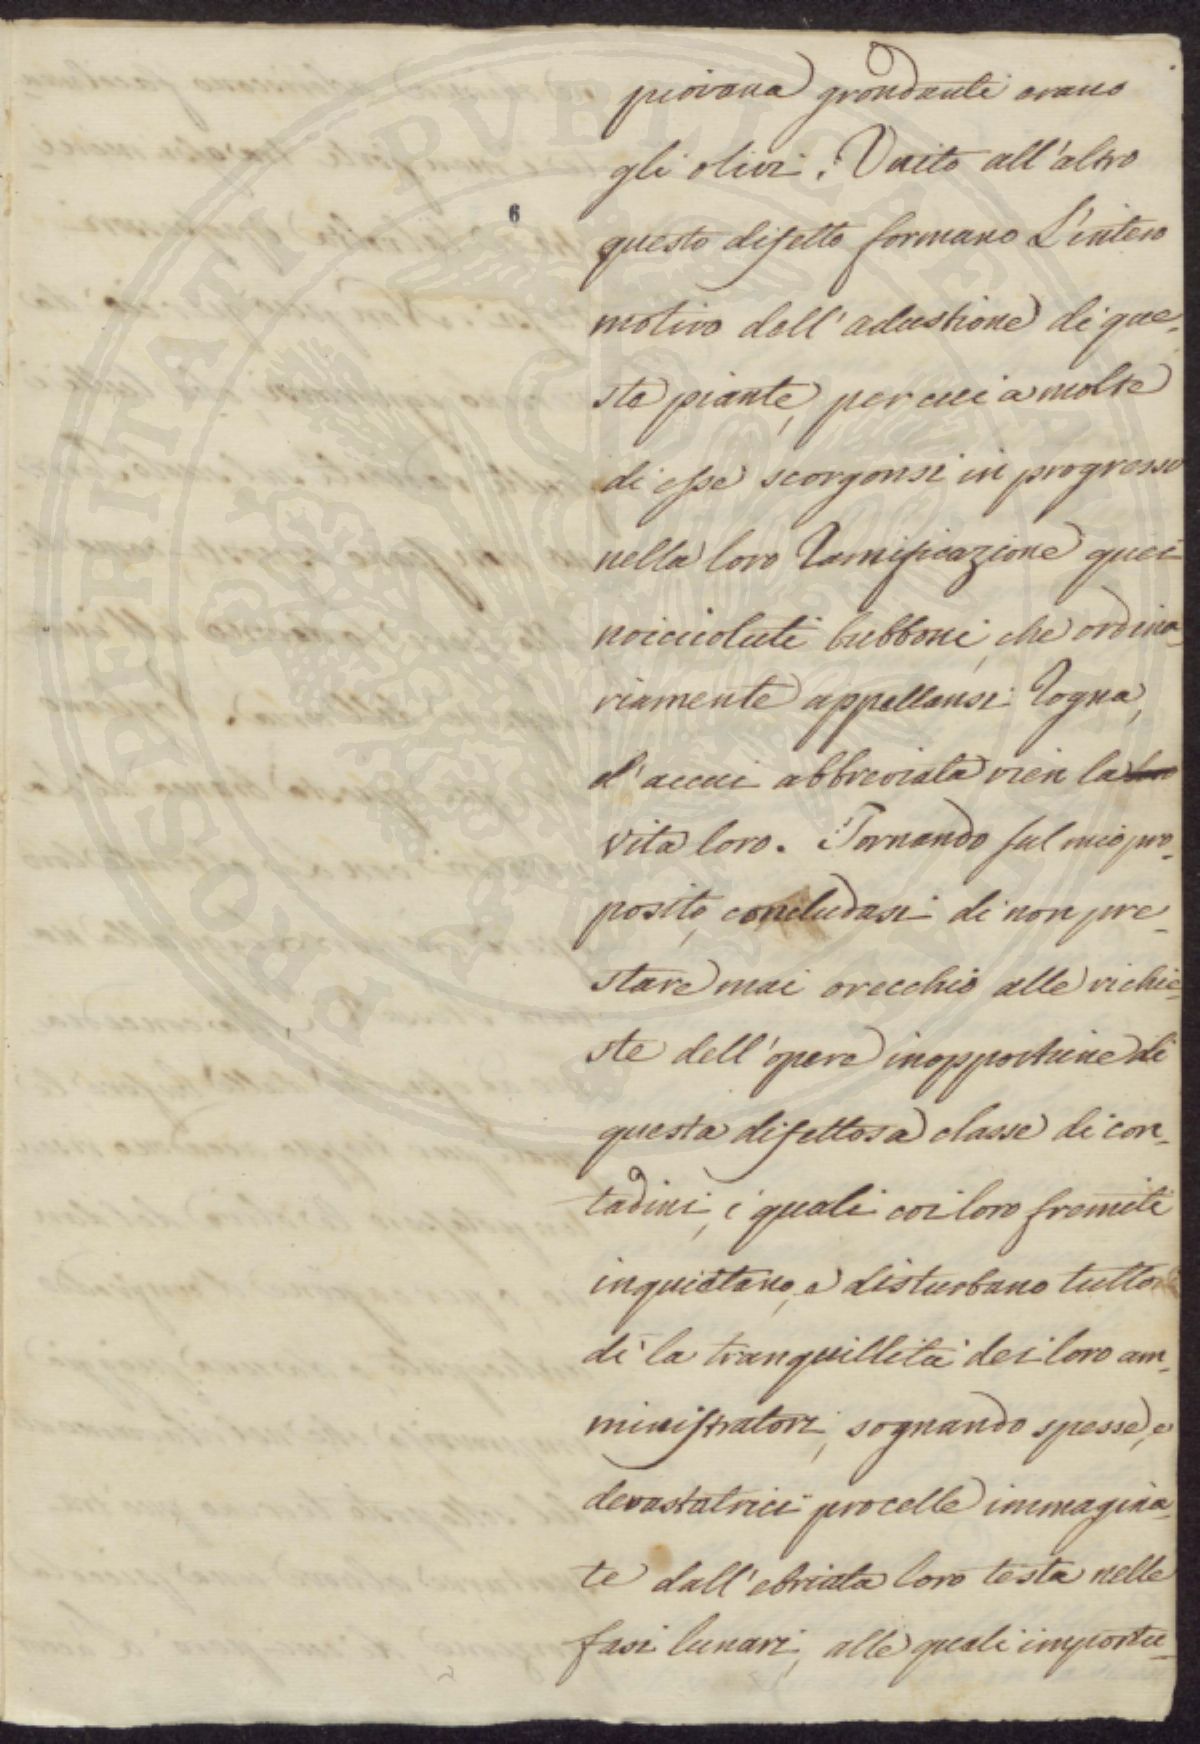 piovana grondanti erano
gli olivi. Unito all'altro
6
questo difetto formano L'intero
motivo dell'adustione di que-
ste piante, per cui a molte
di esse scorgonsi in progresso
nella loro Ramificazione quei
noiccioluti bubboni, che ordina-
riamente appellansi Rogna,
d'accui abbreviata vien la
vita loro. Tornando sul mio pro-
posito, concludasi di non pre-
stare mai orecchio alle richie-
ste dell'opere inopportune di
questa difettosa classe di con-
tadini, i quali coi loro fremiti
inquietano, e disturbano tutto
dì la tranquillità dei loro am-
ministratori, sognando spesse, e
devastatrici procelle immagina-
te dall'ebriata loro testa nelle
fasi lunari, alle quali importu-
PROSPERITATI PVBLICAE AVGENDAE